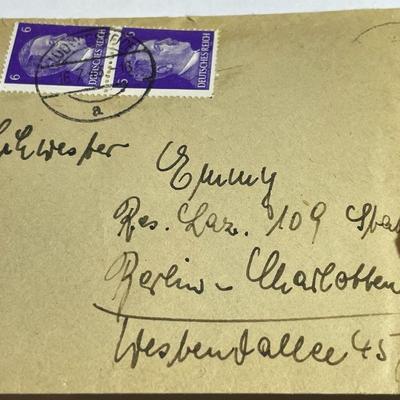 6 6
DEUTSCHES REICH DEUTSCHES REICH
a
Schwester Emmy
Res. Laz. 109
Berlin-Charlotten
Westendallee 45